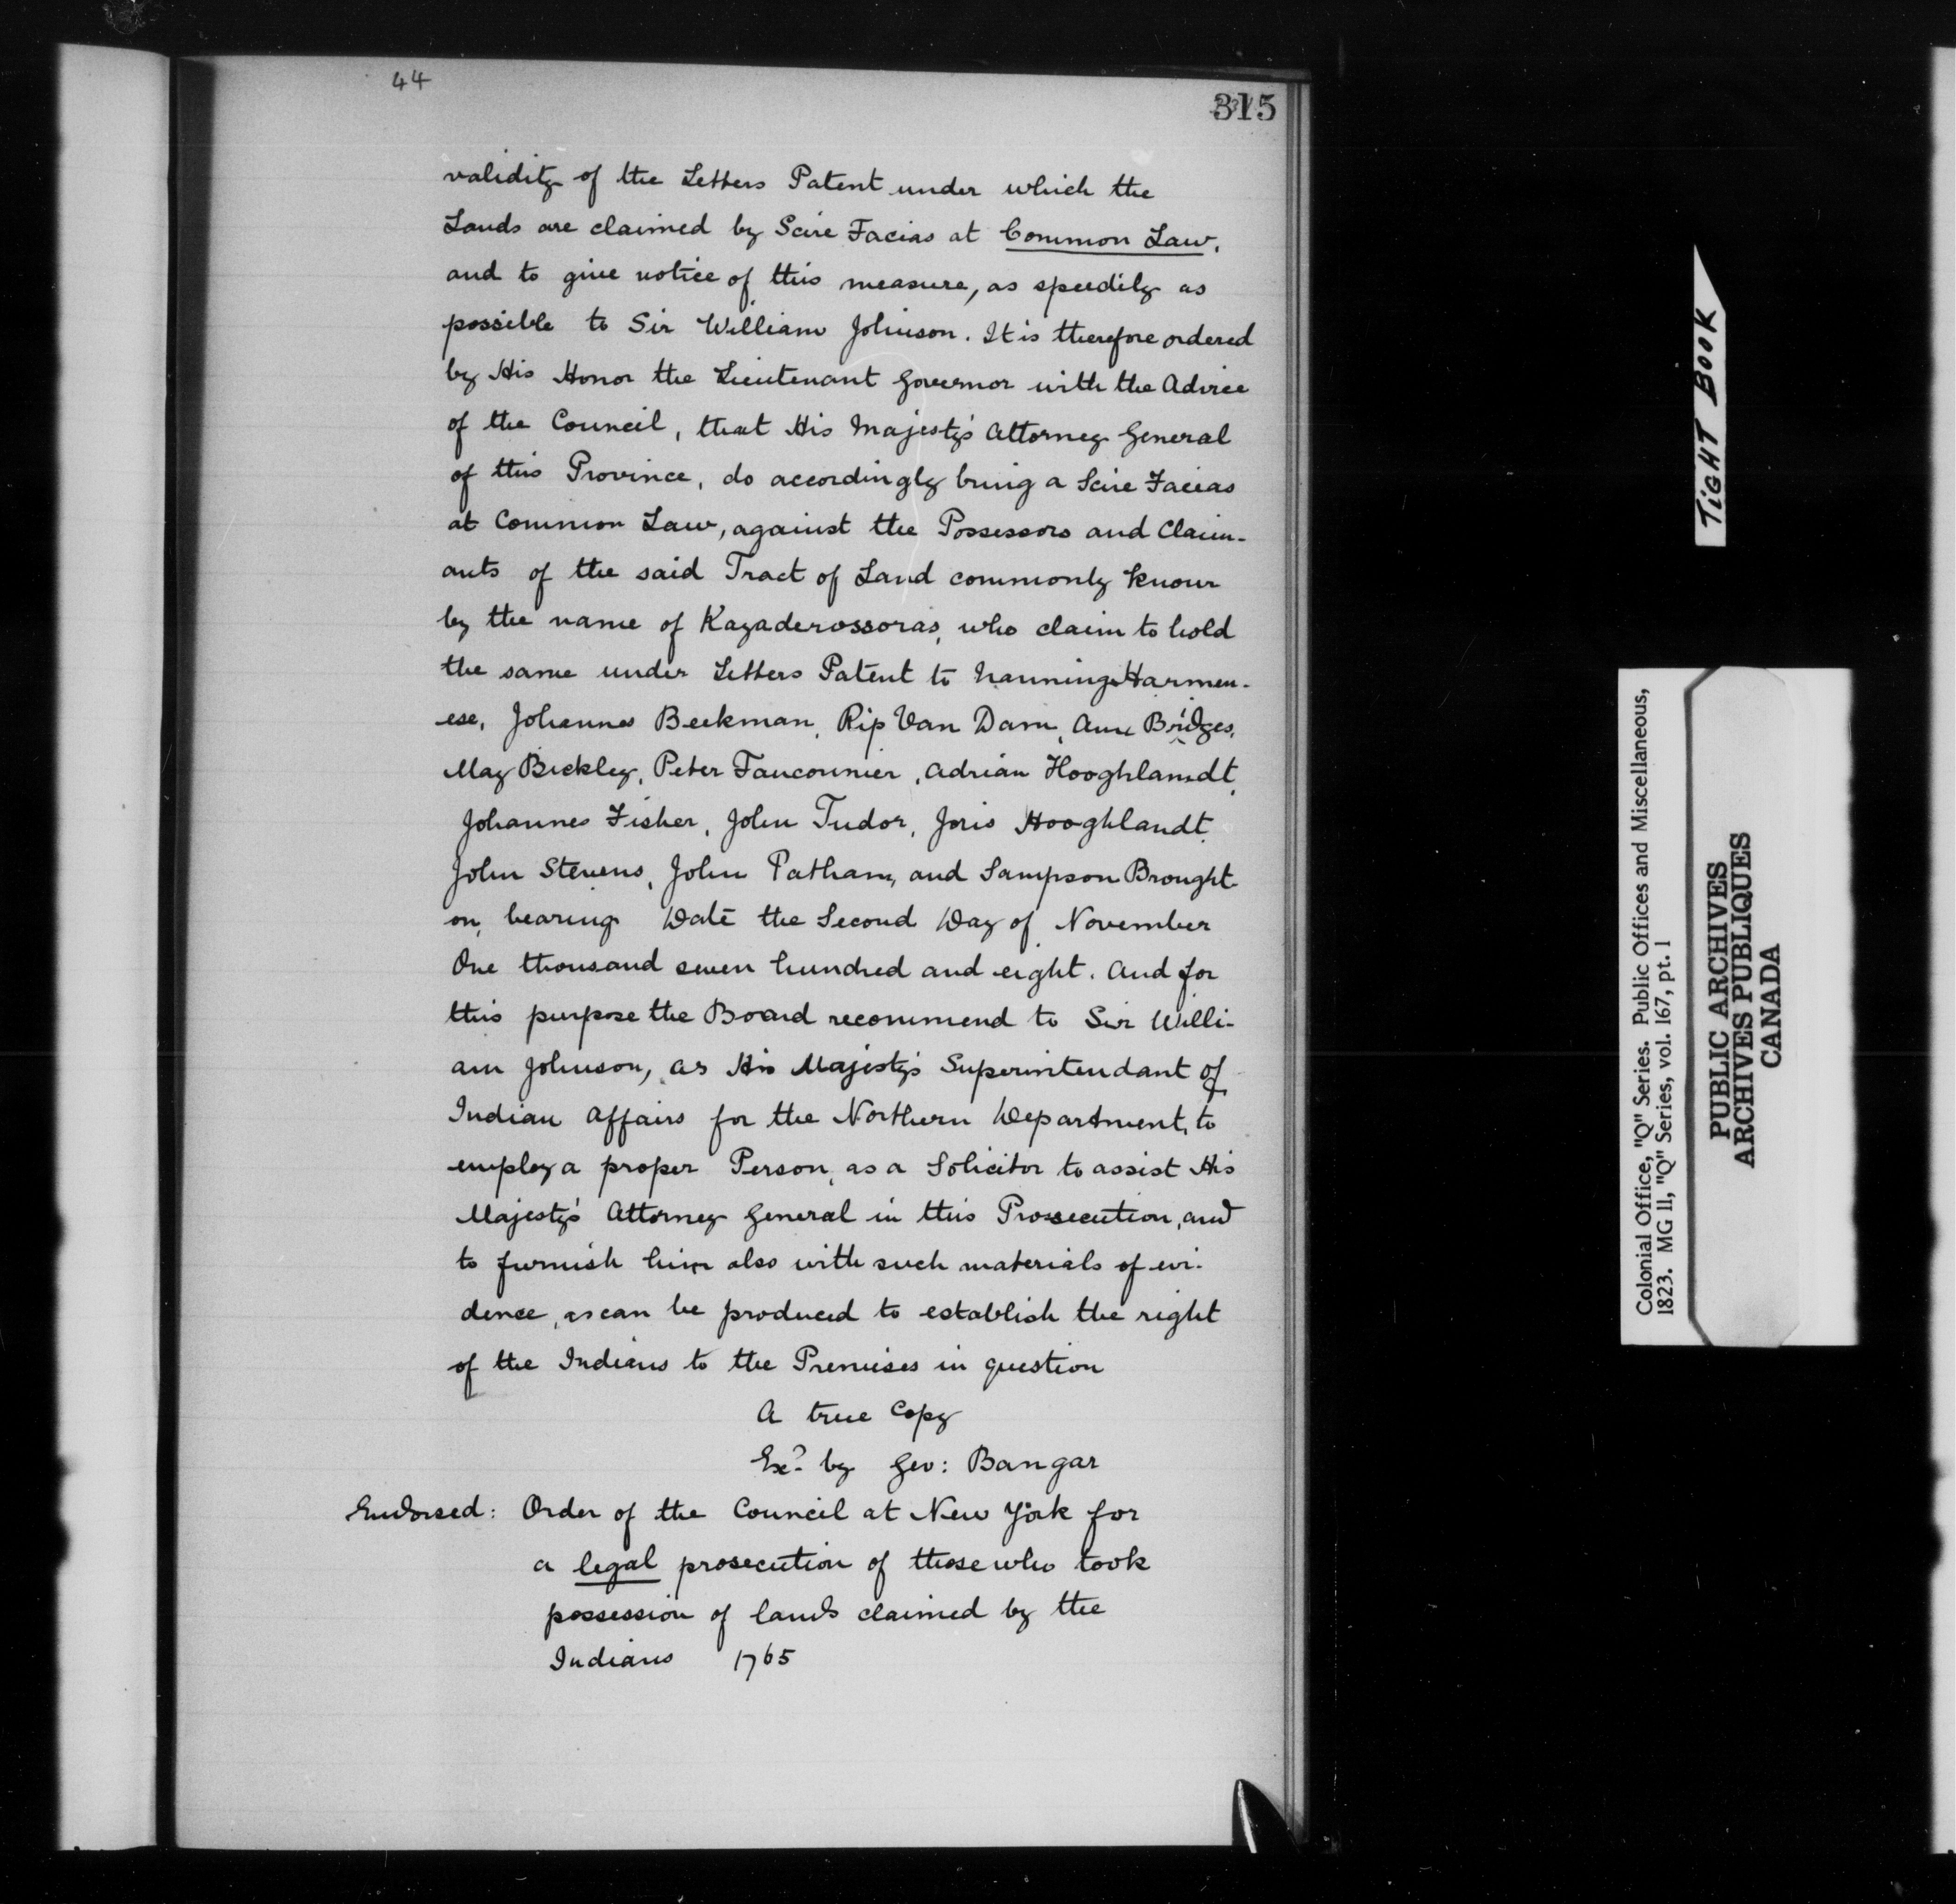 44
315
validity of the Letters Patent under which the
Lands are claimed by Scire Facias at Common Law,
and to give notice of this measure, as speedily as
possible to Sir William Johnson. It is therefore ordered
by His Honor the Lieutenant Governor with the Advice
of the Council, that His Majesty's Attorney General
of this Province, do accordingly bring a Scire Facias
at Common Law, against the Possessors and Claim-
ants of the said Tract of Land commonly known
by the name of Kayaderossoras, who claim to hold
the same under Letters Patent to Nanning Harmen-
ese, Johannes Beekman, Rip Van Dam, Ann Bridges,
May Bickley, Peter Fauconnier, Adrian Hooghlandt,
Johannes Fisher, John Tudor, Joris Hooghlandt,
John Stevens, John Tatham, and Sampson Brought-
on, bearing Date the Second Day of November
One thousand seven hundred and eight. And for
this purpose the Board recommend to Sir Willi-
am Johnson, as His Majesty's Superintendant of
Indian Affairs for the Northern Department, to
employ a proper Person, as a Solicitor to assist His
Majesty's Attorney General in this Prosecution, and
to furnish him also with such materials of evi-
dence, as can be produced to establish the right
of the Indians to the Premises in question
A true Copy
Exd. by Geo: Bangar
Endorsed: Order of the Council at New York for
a legal prosecution of those who took
possession of lands claimed by the
Indians 1765
TIGHT BOOK
Colonial Office, "Q" Series. Public Offices and Miscellaneous,
1823. MG 11, "Q" Series, vol. 167, pt. 1
PUBLIC ARCHIVES
ARCHIVES PUBLIQUES
CANADA